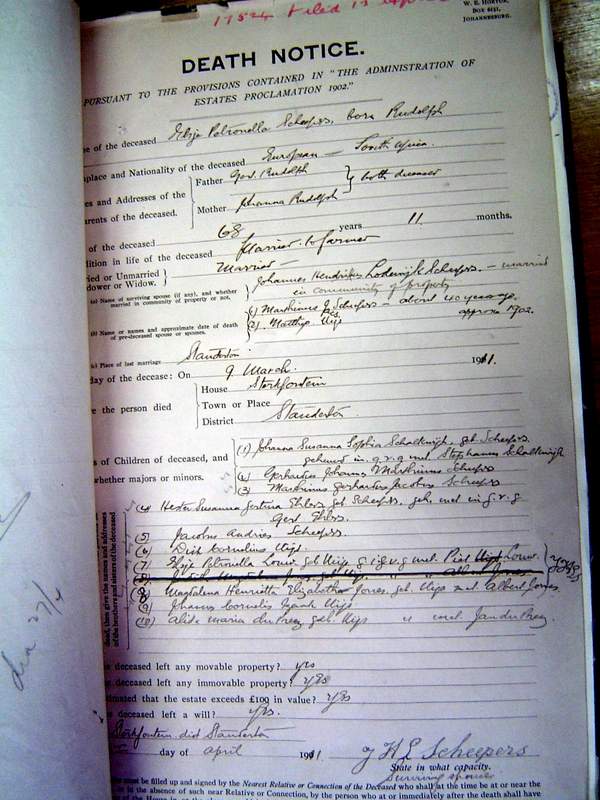 17524 Filed 13
W. E. HORTOR,
BOX 6151,
JOHANNESBURG.
DEATH NOTICE.
PURSUANT TO THE PROVISIONS CONTAINED IN "THE ADMINISTRATION OF
ESTATES PROCLAMATION 1902."
of the deceased Elsje Petronella Scheepers, born Rudolph
place and Nationality of the deceased European — South Africa.
es and Addresses of the
rents of the deceased.
Father Gert Rudolph
Mother Johanna Rudolph
both deceased
of the deceased 68 years 11 months.
dition in life of the deceased Married to farmer
ried or Unmarried
dower or Widow.
Married
(a) Name of surviving spouse (if any), and whether
married in community of property or not,
Johannes Hendrikus Lodewijk Scheepers. — married
in community of property
(b) Name or names and approximate date of death
of pre-deceased spouse or spouses.
(1) Marthinus J Scheepers — about 40 years ago.
(2) Matthys Uijs approx 1902.
(c) Place of last marriage Standerton
day of the decease: On 9 March. 1911.
re the person died
House Sterkfontein
Town or Place
District Standerton
s of Children of deceased, and
whether majors or minors.
(1) Johanna Susanna Sophia Schalkwijk, geb. Scheepers.
gehuwd in g.v.g met Stephanus Schalkwijk
(2) Gerhardus Johannes Marthinus Scheepers
(3) Marthinus Gerhardus Jacobus Scheepers
(4) Hester Susanna Gertruia Ehlers geb Scheepers, geh. met in g.v.g
Gert Ehlers.
(5) Jacobus Andries Scheepers.
(6) Dirk Cornelius Uijs
(7) Elsje Petronella Louw, geb Uijs g i g.v.g met. Piet Louw.
(8) Magdalena Henrietta Elizabetha Jones, geb. Uijs met Albert Jones.
(9) Johannes Cornelis Uijs
(10) Alida Maria du Preez geb. Uijs " met. Jan du Preez
dead, then give the names and addresses
of the brothers and sisters of the deceased
deceased left any movable property? yes
deceased left any immovable property? yes
timated that the estate exceeds £100 in value? yes
deceased left a will? yes.
Sterkfontein dist Standerton
day of April 1911
J H L Scheepers
State in what capacity.
Surviving spouse
must be filled up and signed by the Nearest Relative or Connection of the Deceased who shall at the time be at or near the
or in the absence of such near Relative or Connection, by the person who at or immediately after the death shall have